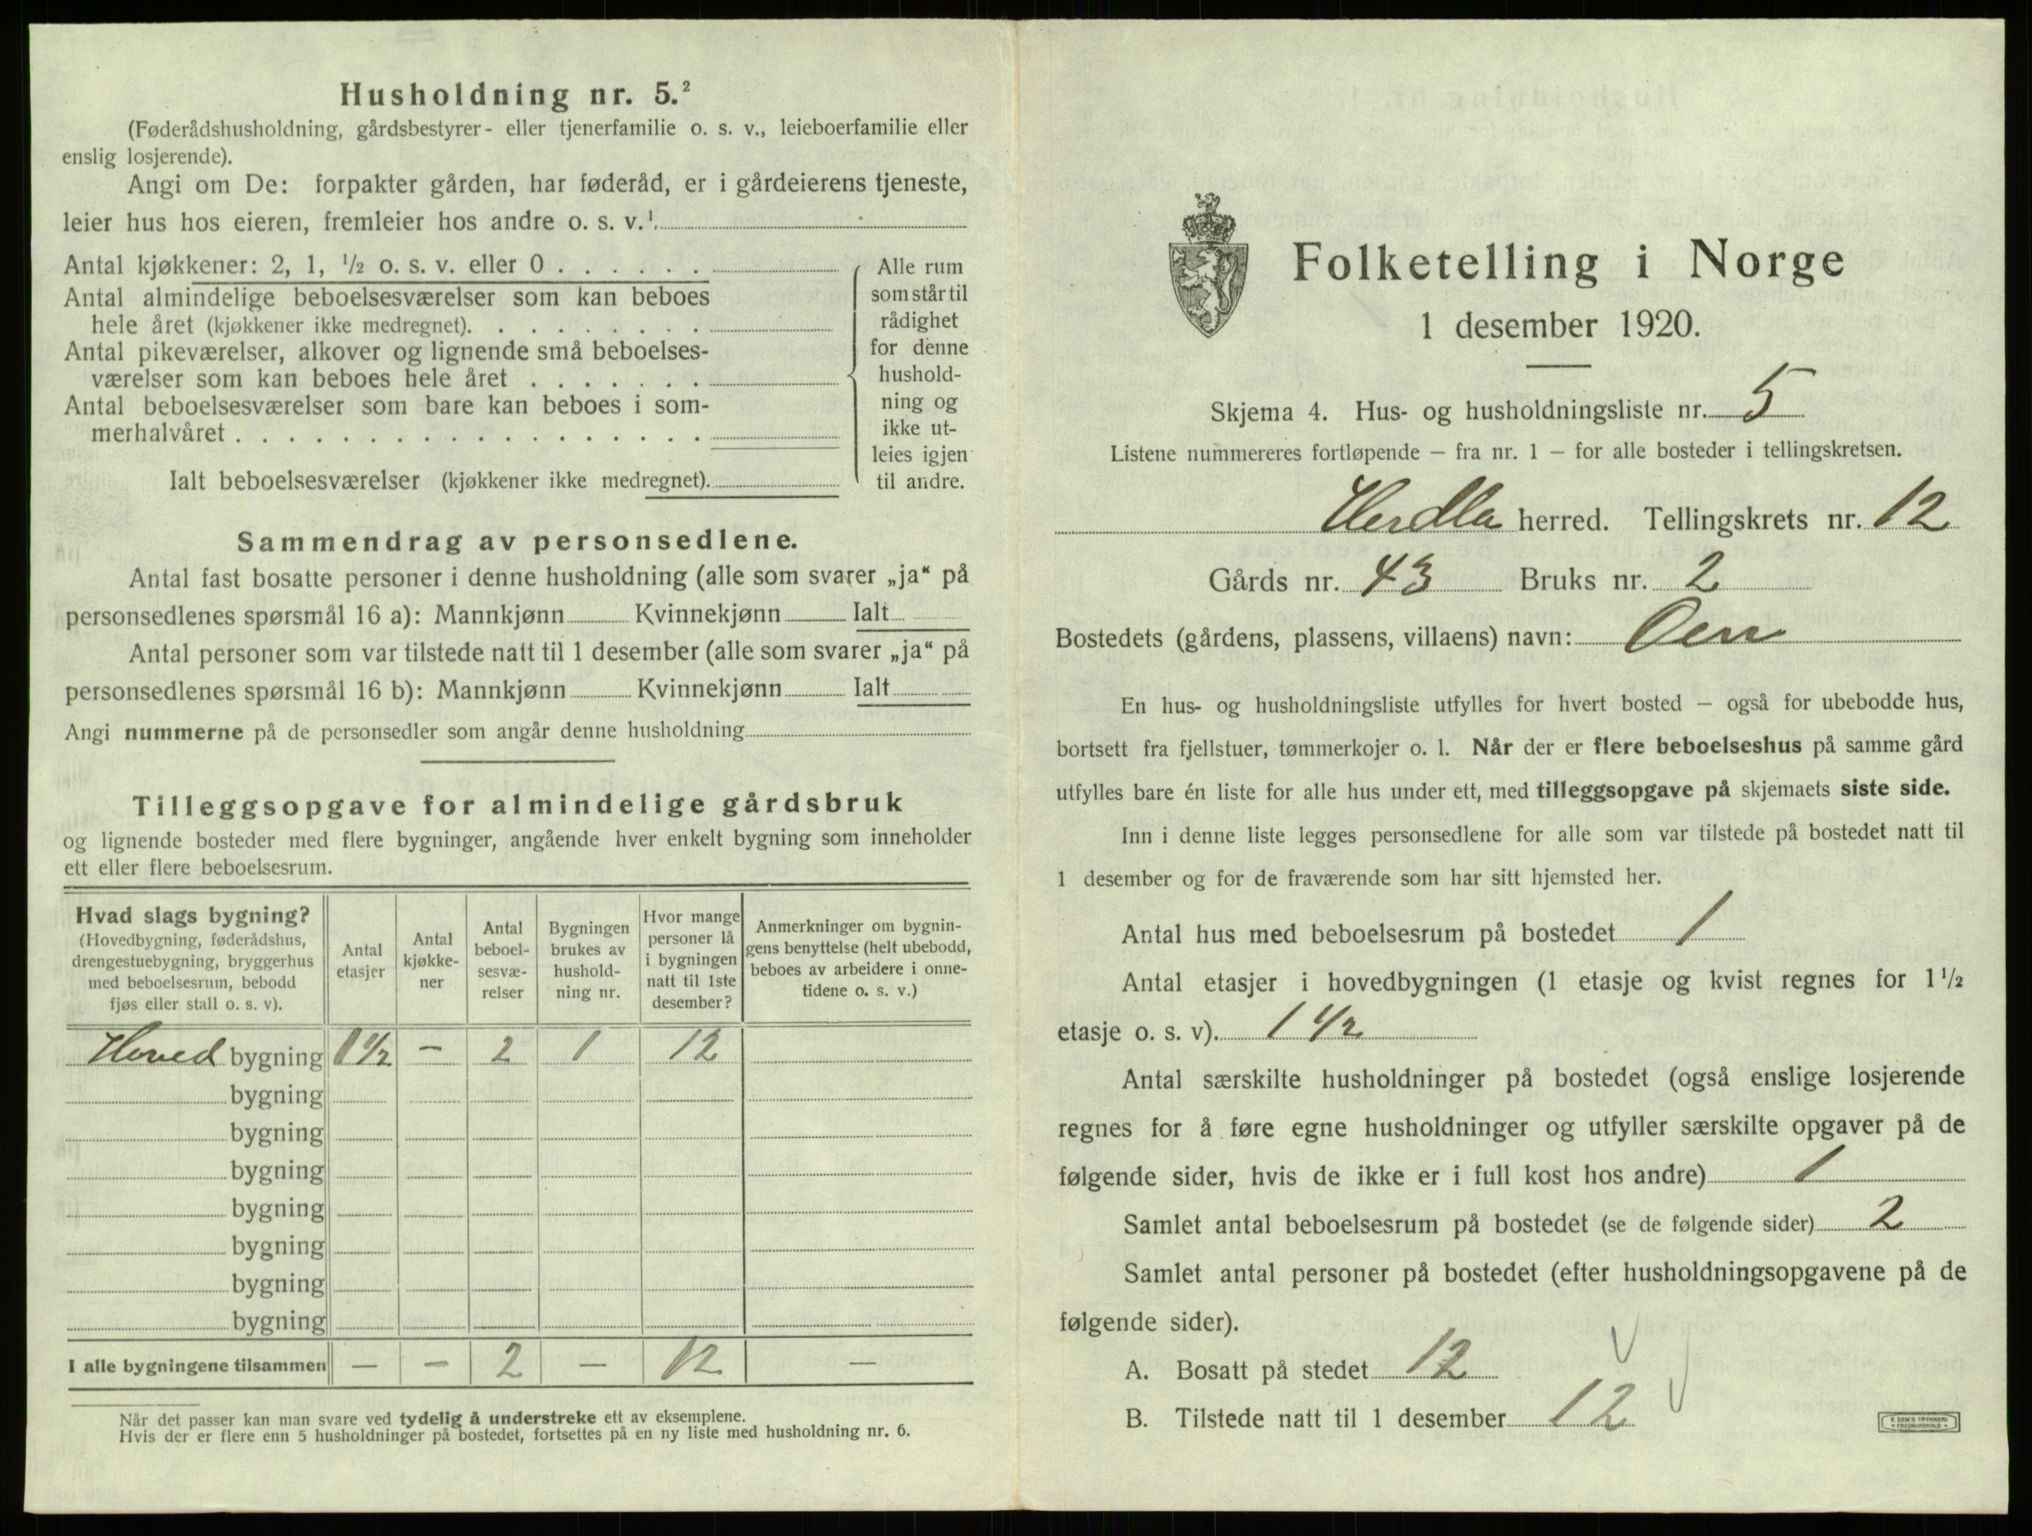 Husholdning nr. 5.²
(Føderådshusholdning, gårdsbestyrer- eller tjenerfamilie o. s. v., leieboerfamilie eller
enslig losjerende).
Angi om De: forpakter gården, har føderåd, er i gårdeierens tjeneste,
leier hus hos eieren, fremleier hos andre o. s. v.¹
Antal kjøkkener: 2, 1, ½ o. s. v. eller 0 . . . . . .
Antal almindelige beboelsesværelser som kan beboes
hele året (kjøkkener ikke medregnet). . . . . . . . .
Antal pikeværelser, alkover og lignende små beboelses-
værelser som kan beboes hele året . . . . . . .
Antal beboelsesværelser som bare kan beboes i som-
merhalvåret . . . . . . . . . . . . . . . . . .
Ialt beboelsesværelser (kjøkkener ikke medregnet).
Alle rum
som står til
rådighet
for denne
hushold-
ning og
ikke ut-
leies igjen
til andre.
Sammendrag av personsedlene.
Antal fast bosatte personer i denne husholdning (alle som svarer „ja“ på
personsedlenes spørsmål 16 a): Mannkjønn Kvinnekjønn Ialt
Antal personer som var tilstede natt til 1 desember (alle som svarer „ja“ på
personsedlenes spørsmål 16 b): Mannkjønn Kvinnekjønn Ialt
Angi nummerne på de personsedler som angår denne husholdning
Tilleggsopgave for almindelige gårdsbruk
og lignende bosteder med flere bygninger, angående hver enkelt bygning som inneholder
ett eller flere beboelsesrum.
Hvad slags bygning?
(Hovedbygning, føderådshus,
drengestuebygning, bryggerhus
med beboelsesrum, bebodd
fjøs eller stall o. s. v).
Antal
etasjer
Antal
kjøkke-
ner
Antal
beboel-
sesvæ-
relser
Bygningen
brukes av
hushold-
ning nr.
Hvor mange
personer lå
i bygningen
natt til 1ste
desember?
Anmerkninger om bygnin-
gens benyttelse (helt ubebodd,
beboes av arbeidere i onne-
tidene o. s. v.)
Hoved bygning 1 1/2 – 2 1 12
bygning
bygning
bygning
bygning
bygning
bygning
bygning
I alle bygningene tilsammen — – 2 — 12 —
Når det passer kan man svare ved tydelig å understreke ett av eksemplene.
Hvis der er flere enn 5 husholdninger på bostedet, fortsettes på en ny liste med husholdning nr. 6.
Folketelling i Norge
1 desember 1920.
Skjema 4. Hus- og husholdningsliste nr. 5
Listene nummereres fortløpende – fra nr. 1 – for alle bosteder i tellingskretsen.
Herdla herred. Tellingskrets nr. 12
Gårds nr. 43 Bruks nr. 2
Bostedets (gårdens, plassens, villaens) navn: Oen
En hus- og husholdningsliste utfylles for hvert bosted – også for ubebodde hus,
bortsett fra fjellstuer, tømmerkojer o. l. Når der er flere beboelseshus på samme gård
utfylles bare én liste for alle hus under ett, med tilleggsopgave på skjemaets siste side.
Inn i denne liste legges personsedlene for alle som var tilstede på bostedet natt til
1 desember og for de fraværende som har sitt hjemsted her.
Antal hus med beboelsesrum på bostedet 1
Antal etasjer i hovedbygningen (1 etasje og kvist regnes for 1½
etasje o. s. v). 1 1/2
Antal særskilte husholdninger på bostedet (også enslige losjerende
regnes for å føre egne husholdninger og utfyller særskilte opgaver på de
følgende sider, hvis de ikke er i full kost hos andre) 1
Samlet antal beboelsesrum på bostedet (se de følgende sider) 2
Samlet antal personer på bostedet (efter husholdningsopgavene på de
følgende sider).
A. Bosatt på stedet 12
B. Tilstede natt til 1 desember 12
E. SEM'S TRYKKERI
FREDRIKSHALD